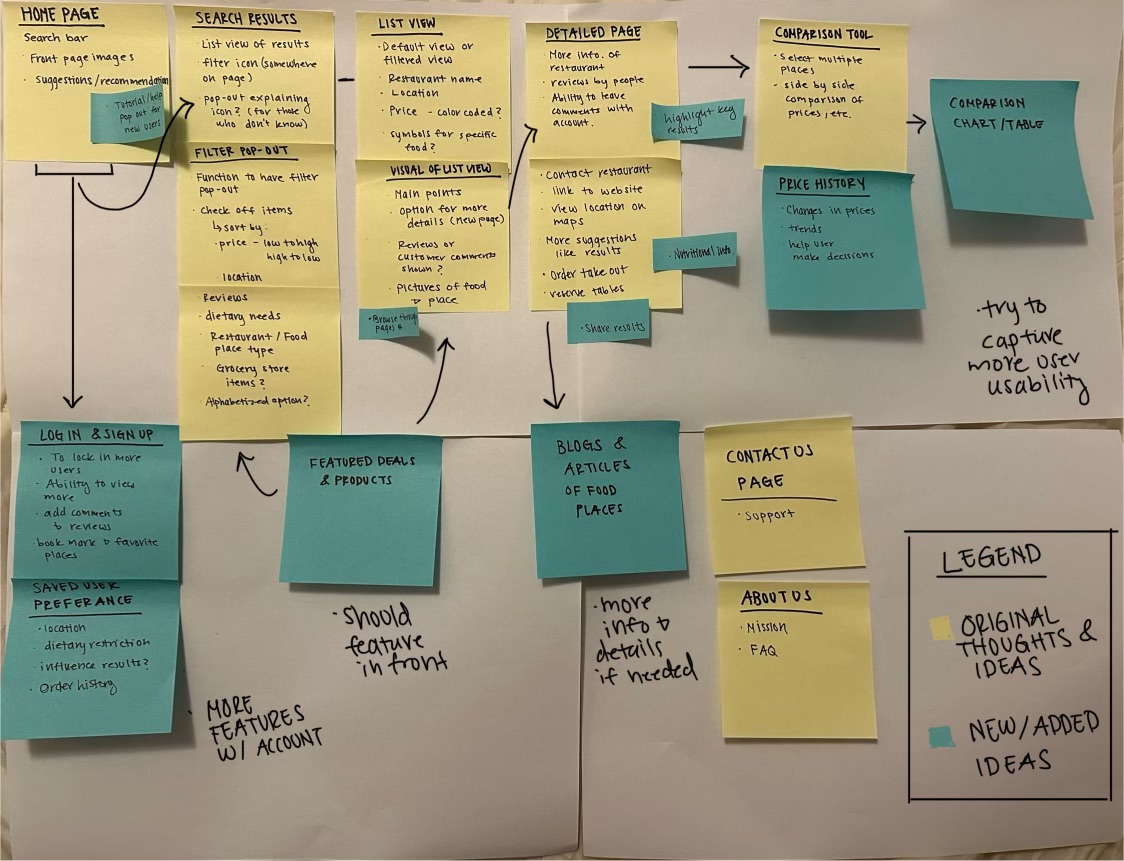 HOME PAGE
Search bar
Front page images
• Suggestions/recommendation
• Tutorial/help
pop out for
new users
SEARCH RESULTS
• List view of results
• filter icon (somewhere
on page)
• pop-out explaining
icon? (for those
who don't know)
FILTER POP-OUT
Function to have filter
pop-out
• Check off items
↳ sort by:
• price - low to high
high to low
• location
Reviews
• dietary needs
• Restaurant / Food
place type
• Grocery store
items?
• Alphabetized option?
LIST VIEW
• Default view or
filtered view
• Restaurant name
• Location
• Price - color coded?
• symbols for specific
food?
VISUAL OF LIST VIEW
Main points
• option for more
details (new page)
• Reviews or
customer comments
shown?
• Pictures of food
place
• Browse through
pages
DETAILED PAGE
More info. of
restaurant
• reviews by people
• Ability to leave
comments with
account.
highlight key
results
• Contact restaurant
• link to website
• view location on
maps
More suggestions
like results
• Order take out
• reserve tables
• Nutritional info.
• Share results
COMPARISON TOOL
• Select multiple
places
• side by side
comparison of
prices, etc.
PRICE HISTORY
• Changes in prices
• trends
• help user
make decisions
COMPARISON
CHART/TABLE
• try to
capture
more user
usability
LOG IN & SIGN UP
• To lock in more
users
• Ability to view
more
• add comments
↳ reviews
• book mark & favorite
places
SAVED USER
PREFERANCE
• location
• dietary restriction
• influence results?
• Order history
• MORE
FEATURES
W/ ACCOUNT
FEATURED DEALS
& PRODUCTS
• should
feature
in front
BLOGS &
ARTICLES
OF FOOD
PLACES
• more
info &
details
if needed
CONTACT US
PAGE
• Support
ABOUT US
• Mission
• FAQ
LEGEND
ORIGINAL
THOUGHTS &
IDEAS
NEW/ADDED
IDEAS